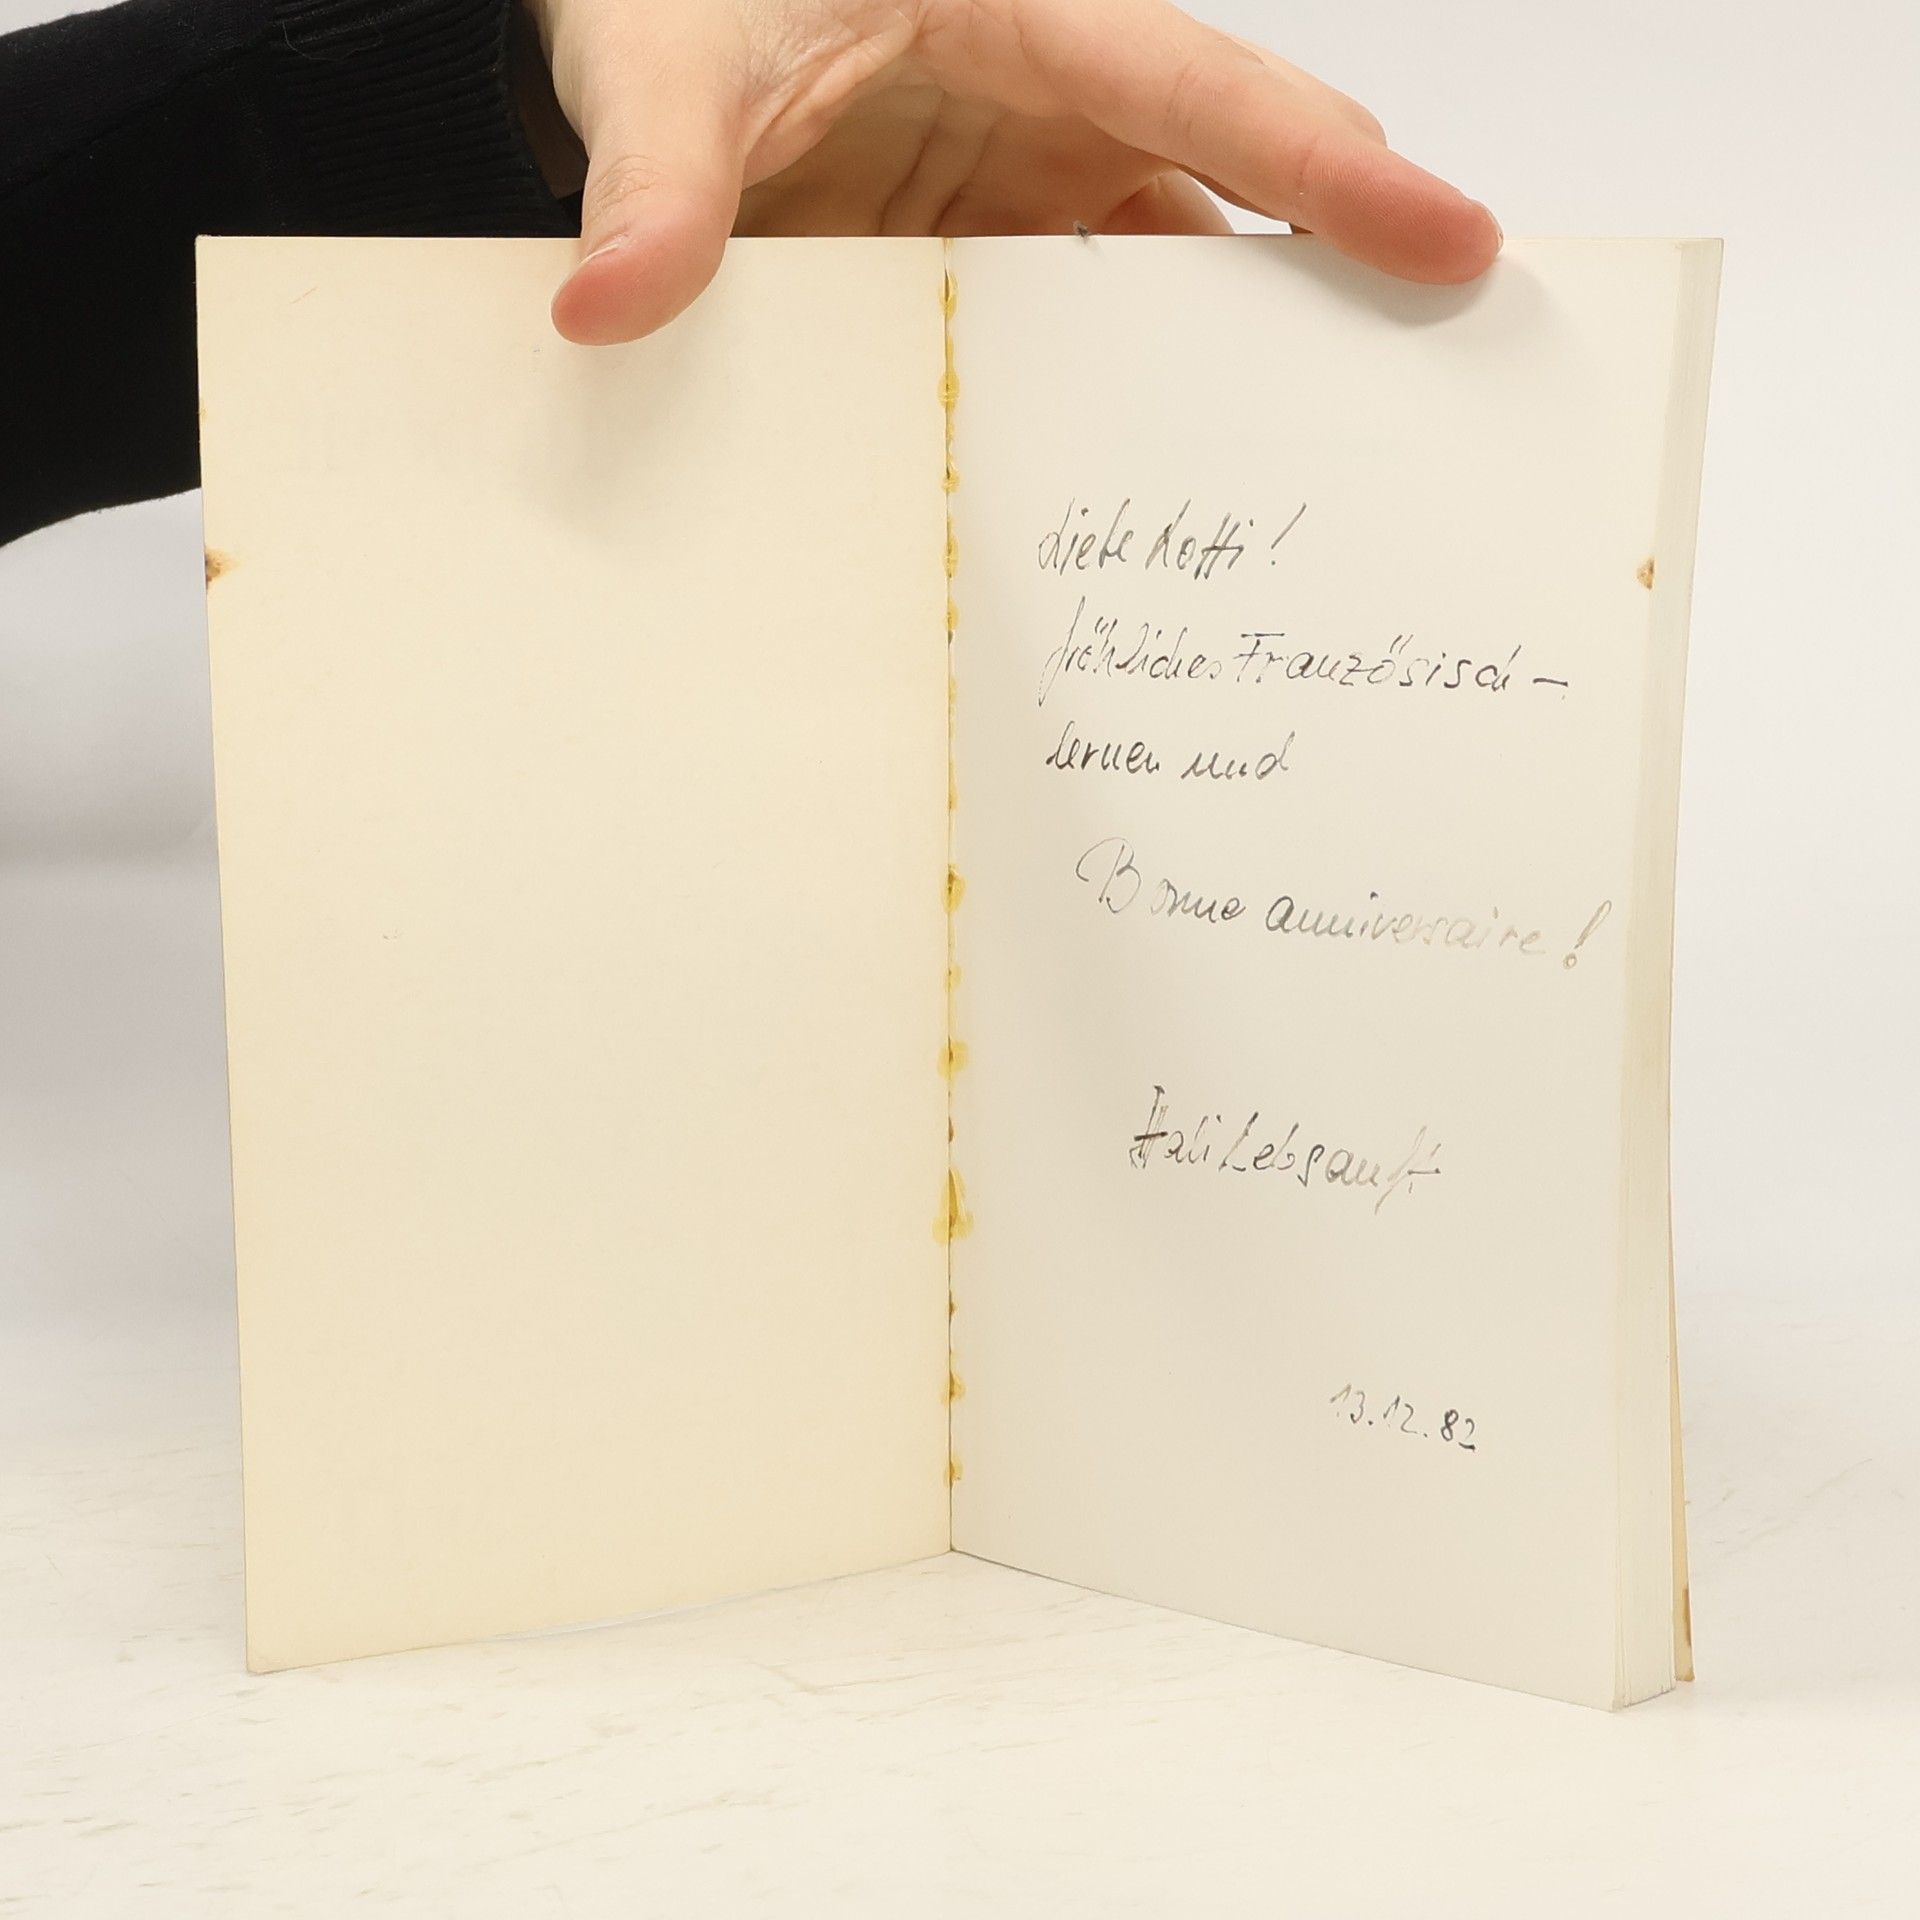 Liebe Lotti!
fröhliches Französisch-
lernen und
Bonne anniversaire!
Lebsanft
13.12.82